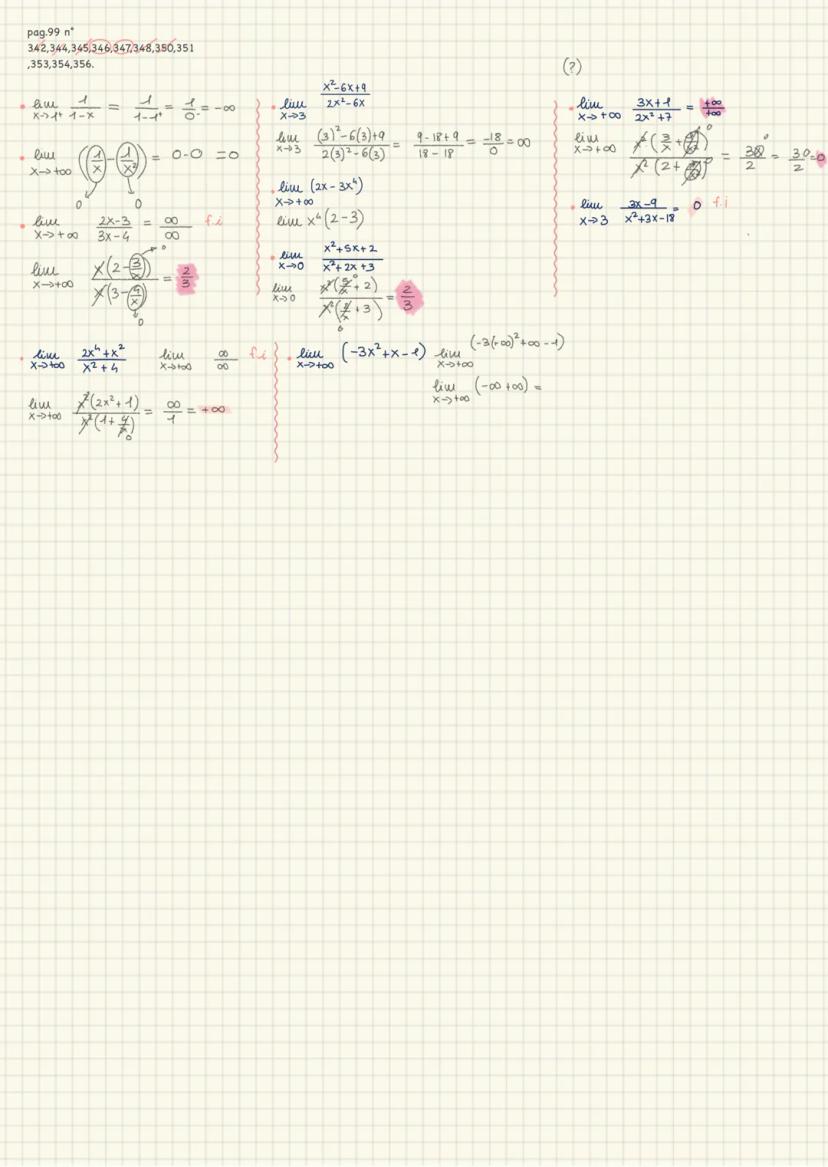 pag.99 n°
342,344,345,346,347,348,350,351
,353,354,356.
lim x→1⁺ 1/(1-x) = 1/(1-1⁺) = 1/0⁻ = -∞
lim x→+∞ (1/x - 1/x²) = 0-0 = 0
0 0
lim x→+∞ (2x-3)/(3x-4) = ∞/∞ f.i
lim x→+∞ x(2-3/x)/x(3-4/x) = 2/3
0
0
lim x→3 (x²-6x+9)/(2x²-6x)
lim x→3 ((3)²-6(3)+9)/(2(3)²-6(3)) = (9-18+9)/(18-18) = -18/0 = ∞
lim x→+∞ (2x-3x⁴)
lim x⁴(2-3)
lim x→0 (x²+5x+2)/(x²+2x+3)
lim x→0 x²(5/x+2)/x²(2/x+3) = 2/3
0
0
(?)
lim x→+∞ (3x+1)/(2x²+7) = +∞/+∞
lim x→+∞ x²(3/x + )/x²(2+ ) = /2 = 30/2 = 0
lim x→3 (3x-9)/(x²+3x-18) = 0 f.i
lim x→+∞ (2x⁴+x²)/(x²+4) lim x→+∞ ∞/∞ f.i
lim x→+∞ x²(2x²+1)/x²(1+4/x²) = ∞/1 = +∞
0
lim x→+∞ (-3x²+x-1) lim x→+∞ (-3(-∞)²+∞-1)
lim x→+∞ (-∞+∞) =